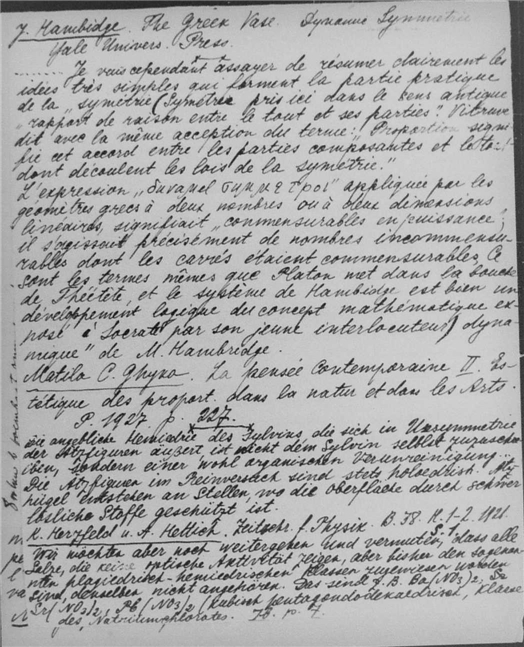 J. Hambidge. The Greek Vase. Dynamic Symmetrie
Yale Univers. Press.
Je vais cependant assayer de résumer clairement les
idées très simples qui forment la partie pratique
de la „symétrie (Symétrie pris ici dans le sens antique
„rapport de raison entre le tout et ses parties". Vitruve
dit avec la même acception du terme: „Proportion signi-
fie cet accord entre les parties composantes et le tout
dont découlent les lois de la symétrie."
L'expression „ appliquée par les
géomètres grecs à deux nombres ou à deux dimensions
linéaires, signifiait „commensurables en puissance;
il s'agissait précisément de nombres incommensu-
rables dont les carrés étaient commensurables. Ce
sont les termes mêmes que Platon met dans la bouche
de Théétète, et le système de Hambidge est bien un
développement logique du concept mathématique ex-
posé à Socrate par son jeune interlocuteur) dyna-
mique" de M. Hambridge.
Matila C. Ghyka. La pensée Contemporaine II. Es-
tétique des proport. dans la natur et dans les Arts.
P. 1927 p. 227
Die angebliche Hemiedrie des Sylvins, die sich in Unsymmetrie
der Ätzfiguren äußert ist nicht dem Sylvin selbst zuzuschrei-
iben, sondern einer wohl organischen Verunreinigung..
Die Ätzfiguren im Reinversuch sind stets holoedrisch.
hügel entstehen an Stellen, wo die oberfläche durch schwer
lösliche Stoffe geschützt ist.
K. Herzfeld u. A. Hettich, Zeitschr. f. Physik. B. 38. H. 1-2. 1926.
Wir möchten aber noch weitergehen und vermuten, dass alle
Salze, die keine optische Aktivität zeigen, aber bisher den sogenan-
nten plagiedrisch-hemiedrischen Klassen zugewiesen worden
sind, denselben nicht angehören. Das sind z. B. Ba(NO3)2,
Sr(NO3)2, Pb(NO3)2 (kubisch pentagondodekaedrisch, Klasse
des Natriumchlorates. Ib. p. 7.